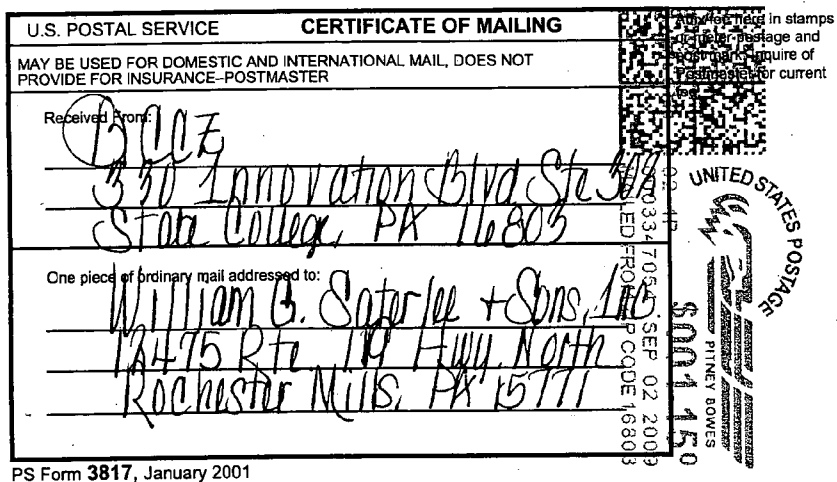 U.S. POSTAL SERVICE CERTIFICATE OF MAILING
MAY BE USED FOR DOMESTIC AND INTERNATIONAL MAIL, DOES NOT
PROVIDE FOR INSURANCE–POSTMASTER
Affix fee here in stamps
or meter postage and
post mark. Inquire of
Postmaster for current
fee.
Received From:
330 Innovation Blvd Ste 302
State College, PA 16803
One piece of ordinary mail addressed to:
William G. Saterlee + Sons, Inc
12475 Rte 119 Hwy. North
Rochester Mills, PA 15771
PS Form 3817, January 2001
UNITED STATES POSTAGE
PITNEY BOWES
02 1P
$001.150
SEP 02 2009
MAILED FROM ZIP CODE 16803